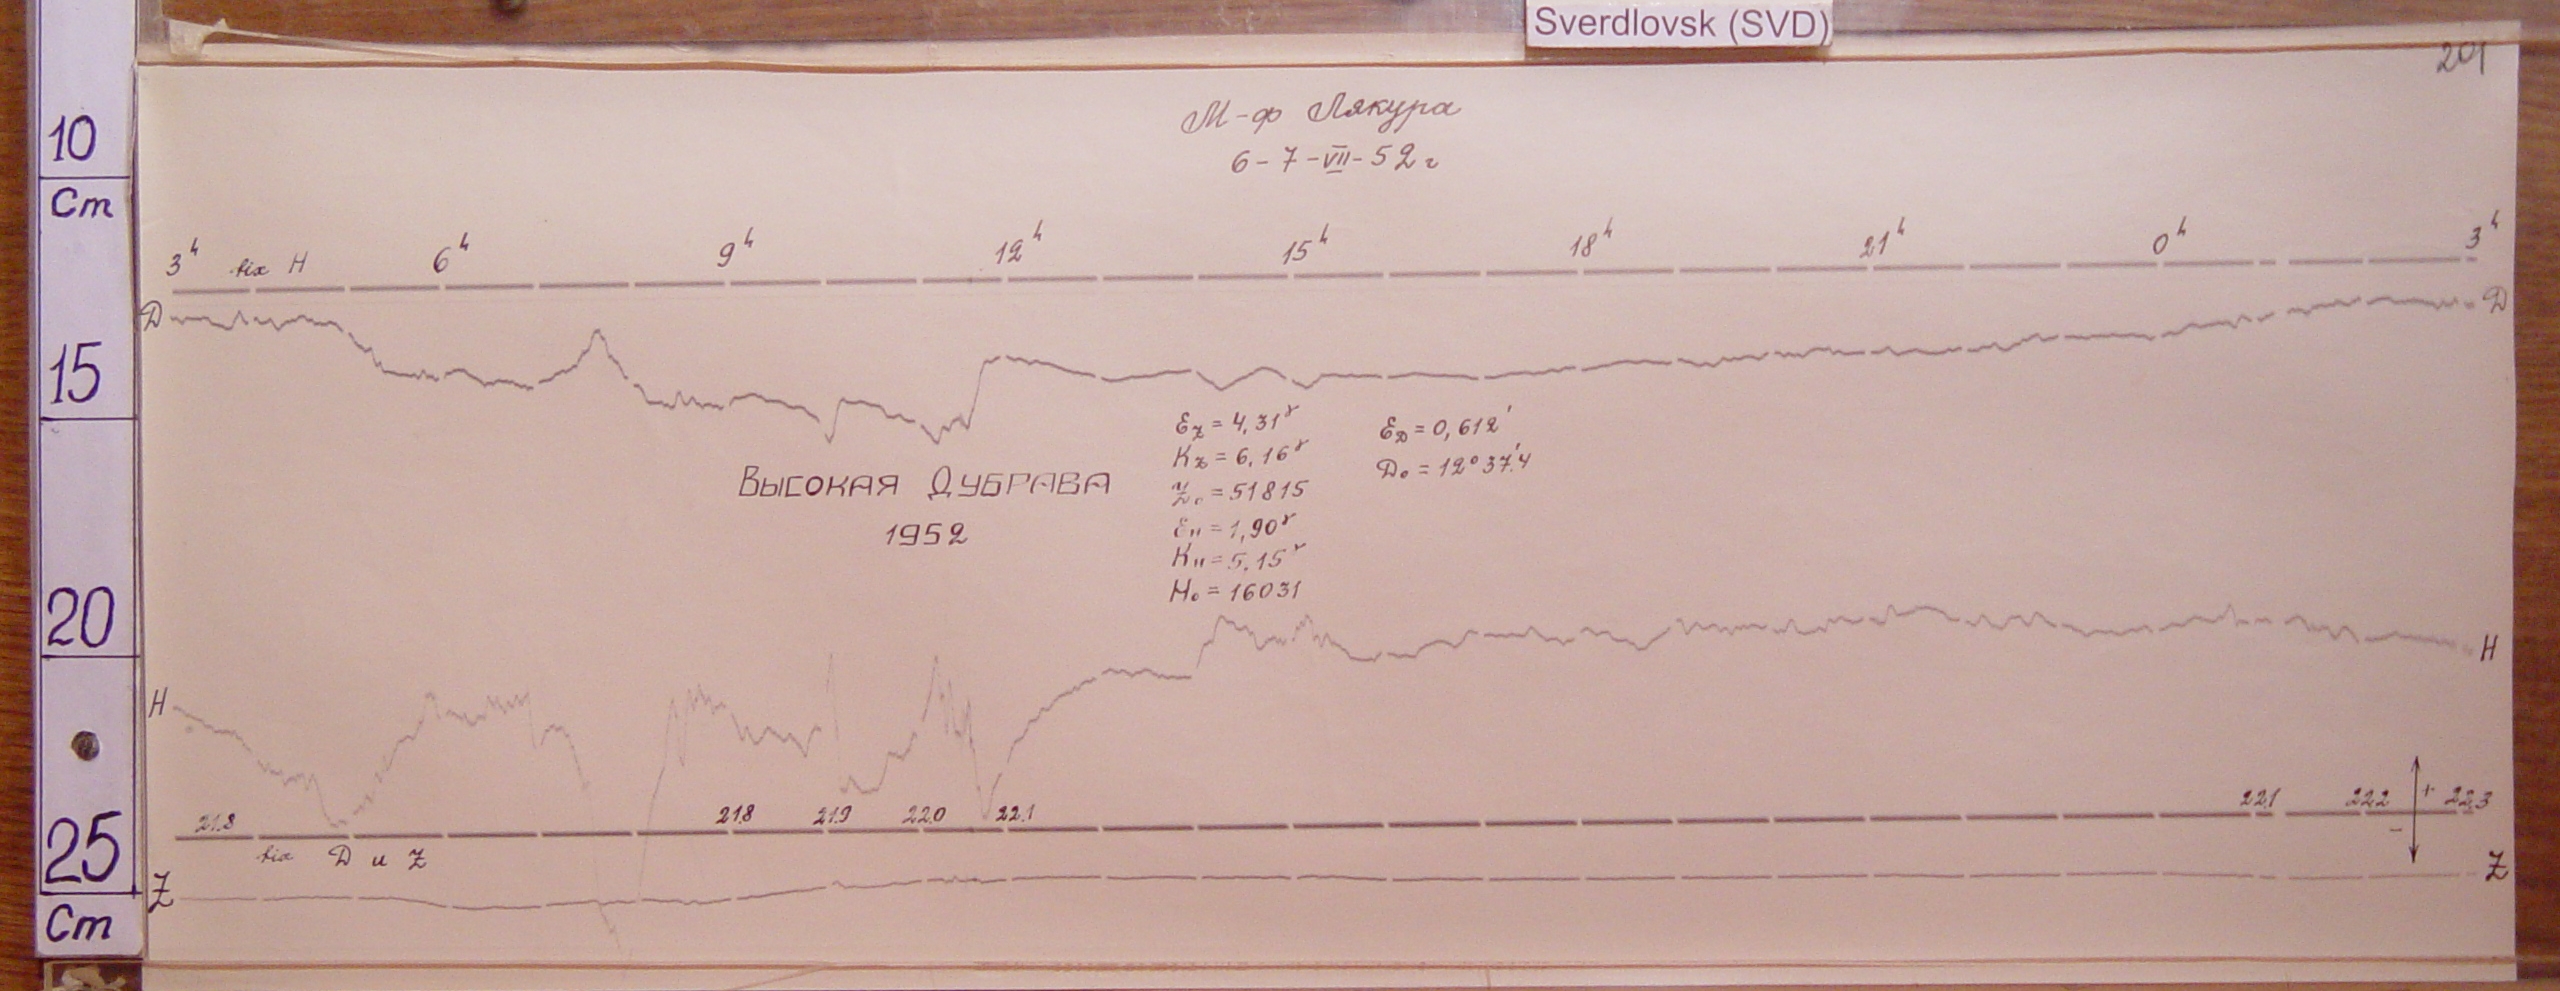 Sverdlovsk (SVD)
201
М-ф Лякура
6-7-VII-52 г
10
Cm
15
20
25
Cm
3ʰ 6ʰ 9ʰ 12ʰ 15ʰ 18ʰ 21ʰ 0ʰ 3ʰ
H
D D
Ɛz = 4,31ᵞ
Kz = 6,16ᵞ
Z₀ = 51815
Ɛн = 1,90ᵞ
Kн = 5,15ᵞ
H₀ = 16031
ƐD = 0,612'
D₀ = 12°37'.4
ВЫСОКАЯ ДУБРАВА
1952
H H
21.8 21.8 21.9 22.0 22.1 22.1 22.2 + 22.3
−
D и Z
Z Z